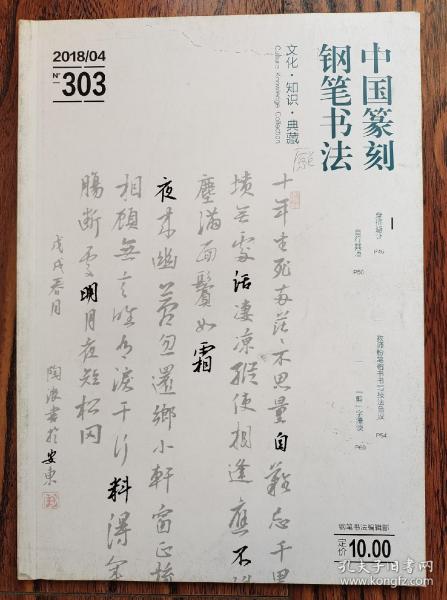 2018/04
N°
303
中国篆刻
钢笔书法
文化·知识·典藏
Culture Knowledge Collection
P50
教师粉笔楷书书写技法目议
P54
P60
十年生死两茫茫不思量自难忘千里
坟无处话凄凉纵使相逢应不
尘满面鬓如霜
夜来幽梦忽还乡小轩窗正梳
相顾无言唯有泪千行料得年
肠断处明月夜短松冈
戊戌春月
陶波书于安东
钢笔书法编辑部
定价
10.00
孔夫子旧书网